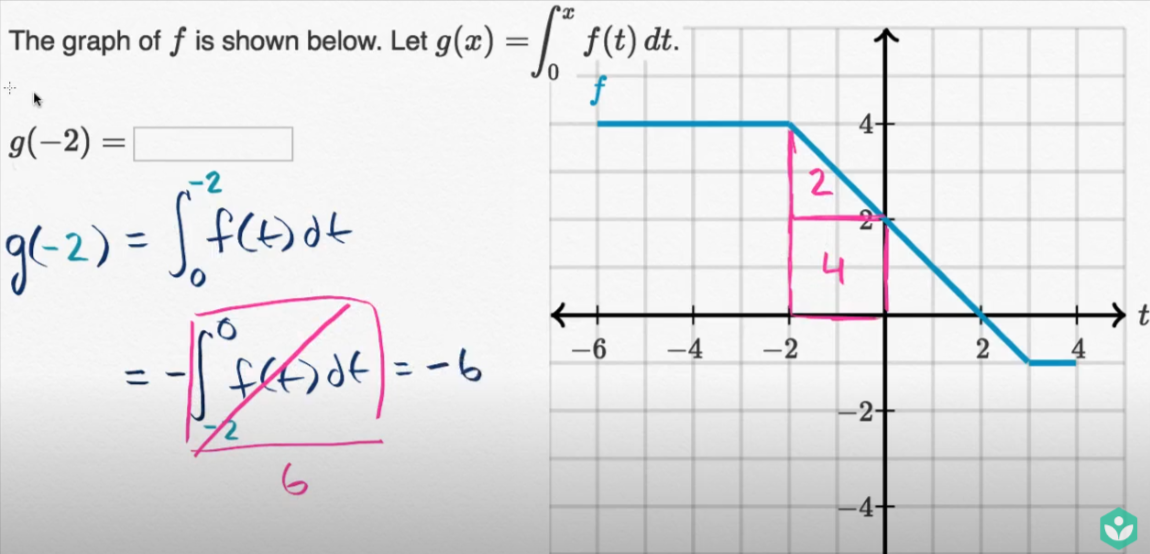 The graph of f is shown below. Let g(x) = ∫₀ˣ f(t) dt.
f
g(−2) =
g(-2) = ∫₀⁻² f(t)dt
= -∫₋₂⁰ f(t)dt = -6
6
4
2
2
4
−6 −4 −2 2 4 t
−2
−4